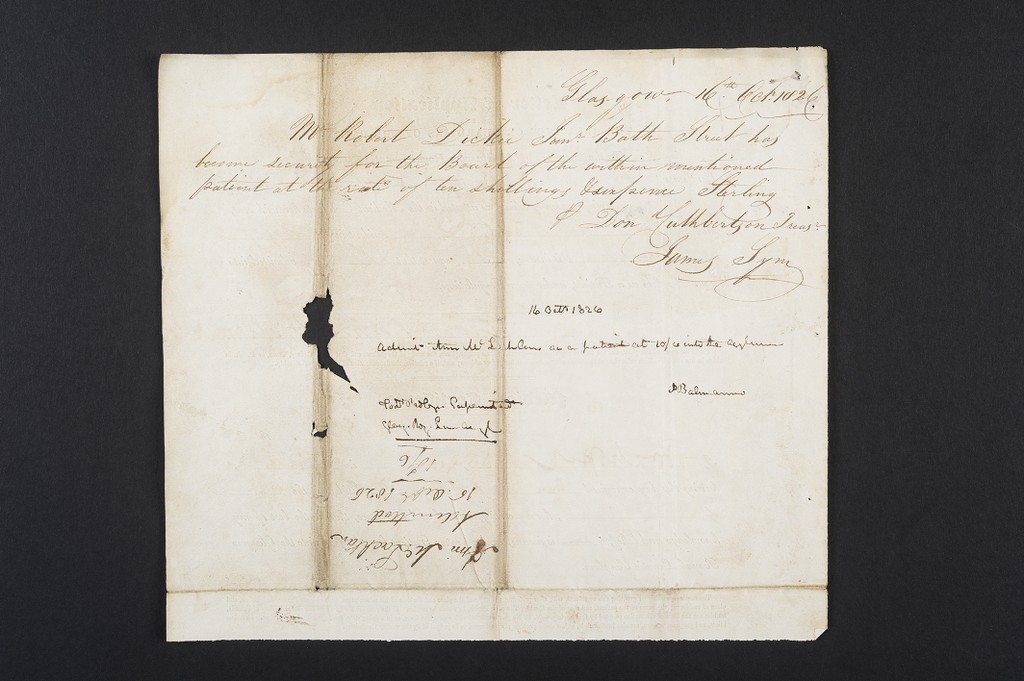 Glasgow, 16th Octr. 1826.
Mr Robert Dickie Junr. Bath Street has
become security for the Board of the within mentioned
patient at the rate of ten shillings & sixpence Sterling
P Don Cuthbertson Treasr
James Sym
16 Octr 1826
Admit Ann McLachlan as a patient at 10/6 into the asylum
JBalmanno
Glasg. Roy. Lun. Asy
10/6
16 Octr 1826
Admitted
Ann McLachlan